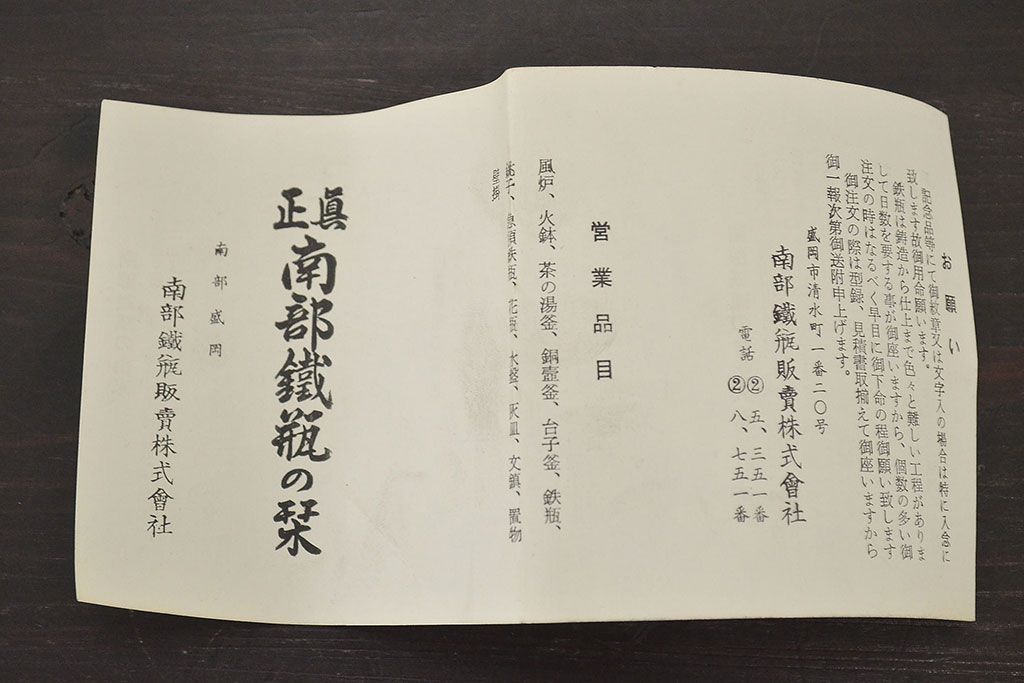 お願い
記念品等にて御紋章又は文字入の場合は特に入念に
致します故御用命願います。
鉄瓶は鋳造から仕上まで色々と難しい工程がありま
して日数を要する事が御座いますから、個数の多い御
注文の時はなるべく早目に御下命の程御願い致します
御注文の際は型録、見積書取揃えて御座いますから
御一報次第御送附申上げます。
盛岡市清水町一番二〇号
南部鐵瓶販賣株式會社
電話 ② 五、三五一番
② 八、七五一番
営業品目
風炉、火鉢、茶の湯釜、銅壺釜、台子釜、鉄瓶、
銚子、急須鉄瓶、花瓶、水盤、灰皿、文鎮、置物
壁掛
眞正
南部鐵瓶の栞
南部盛岡
南部鐵瓶販賣株式會社